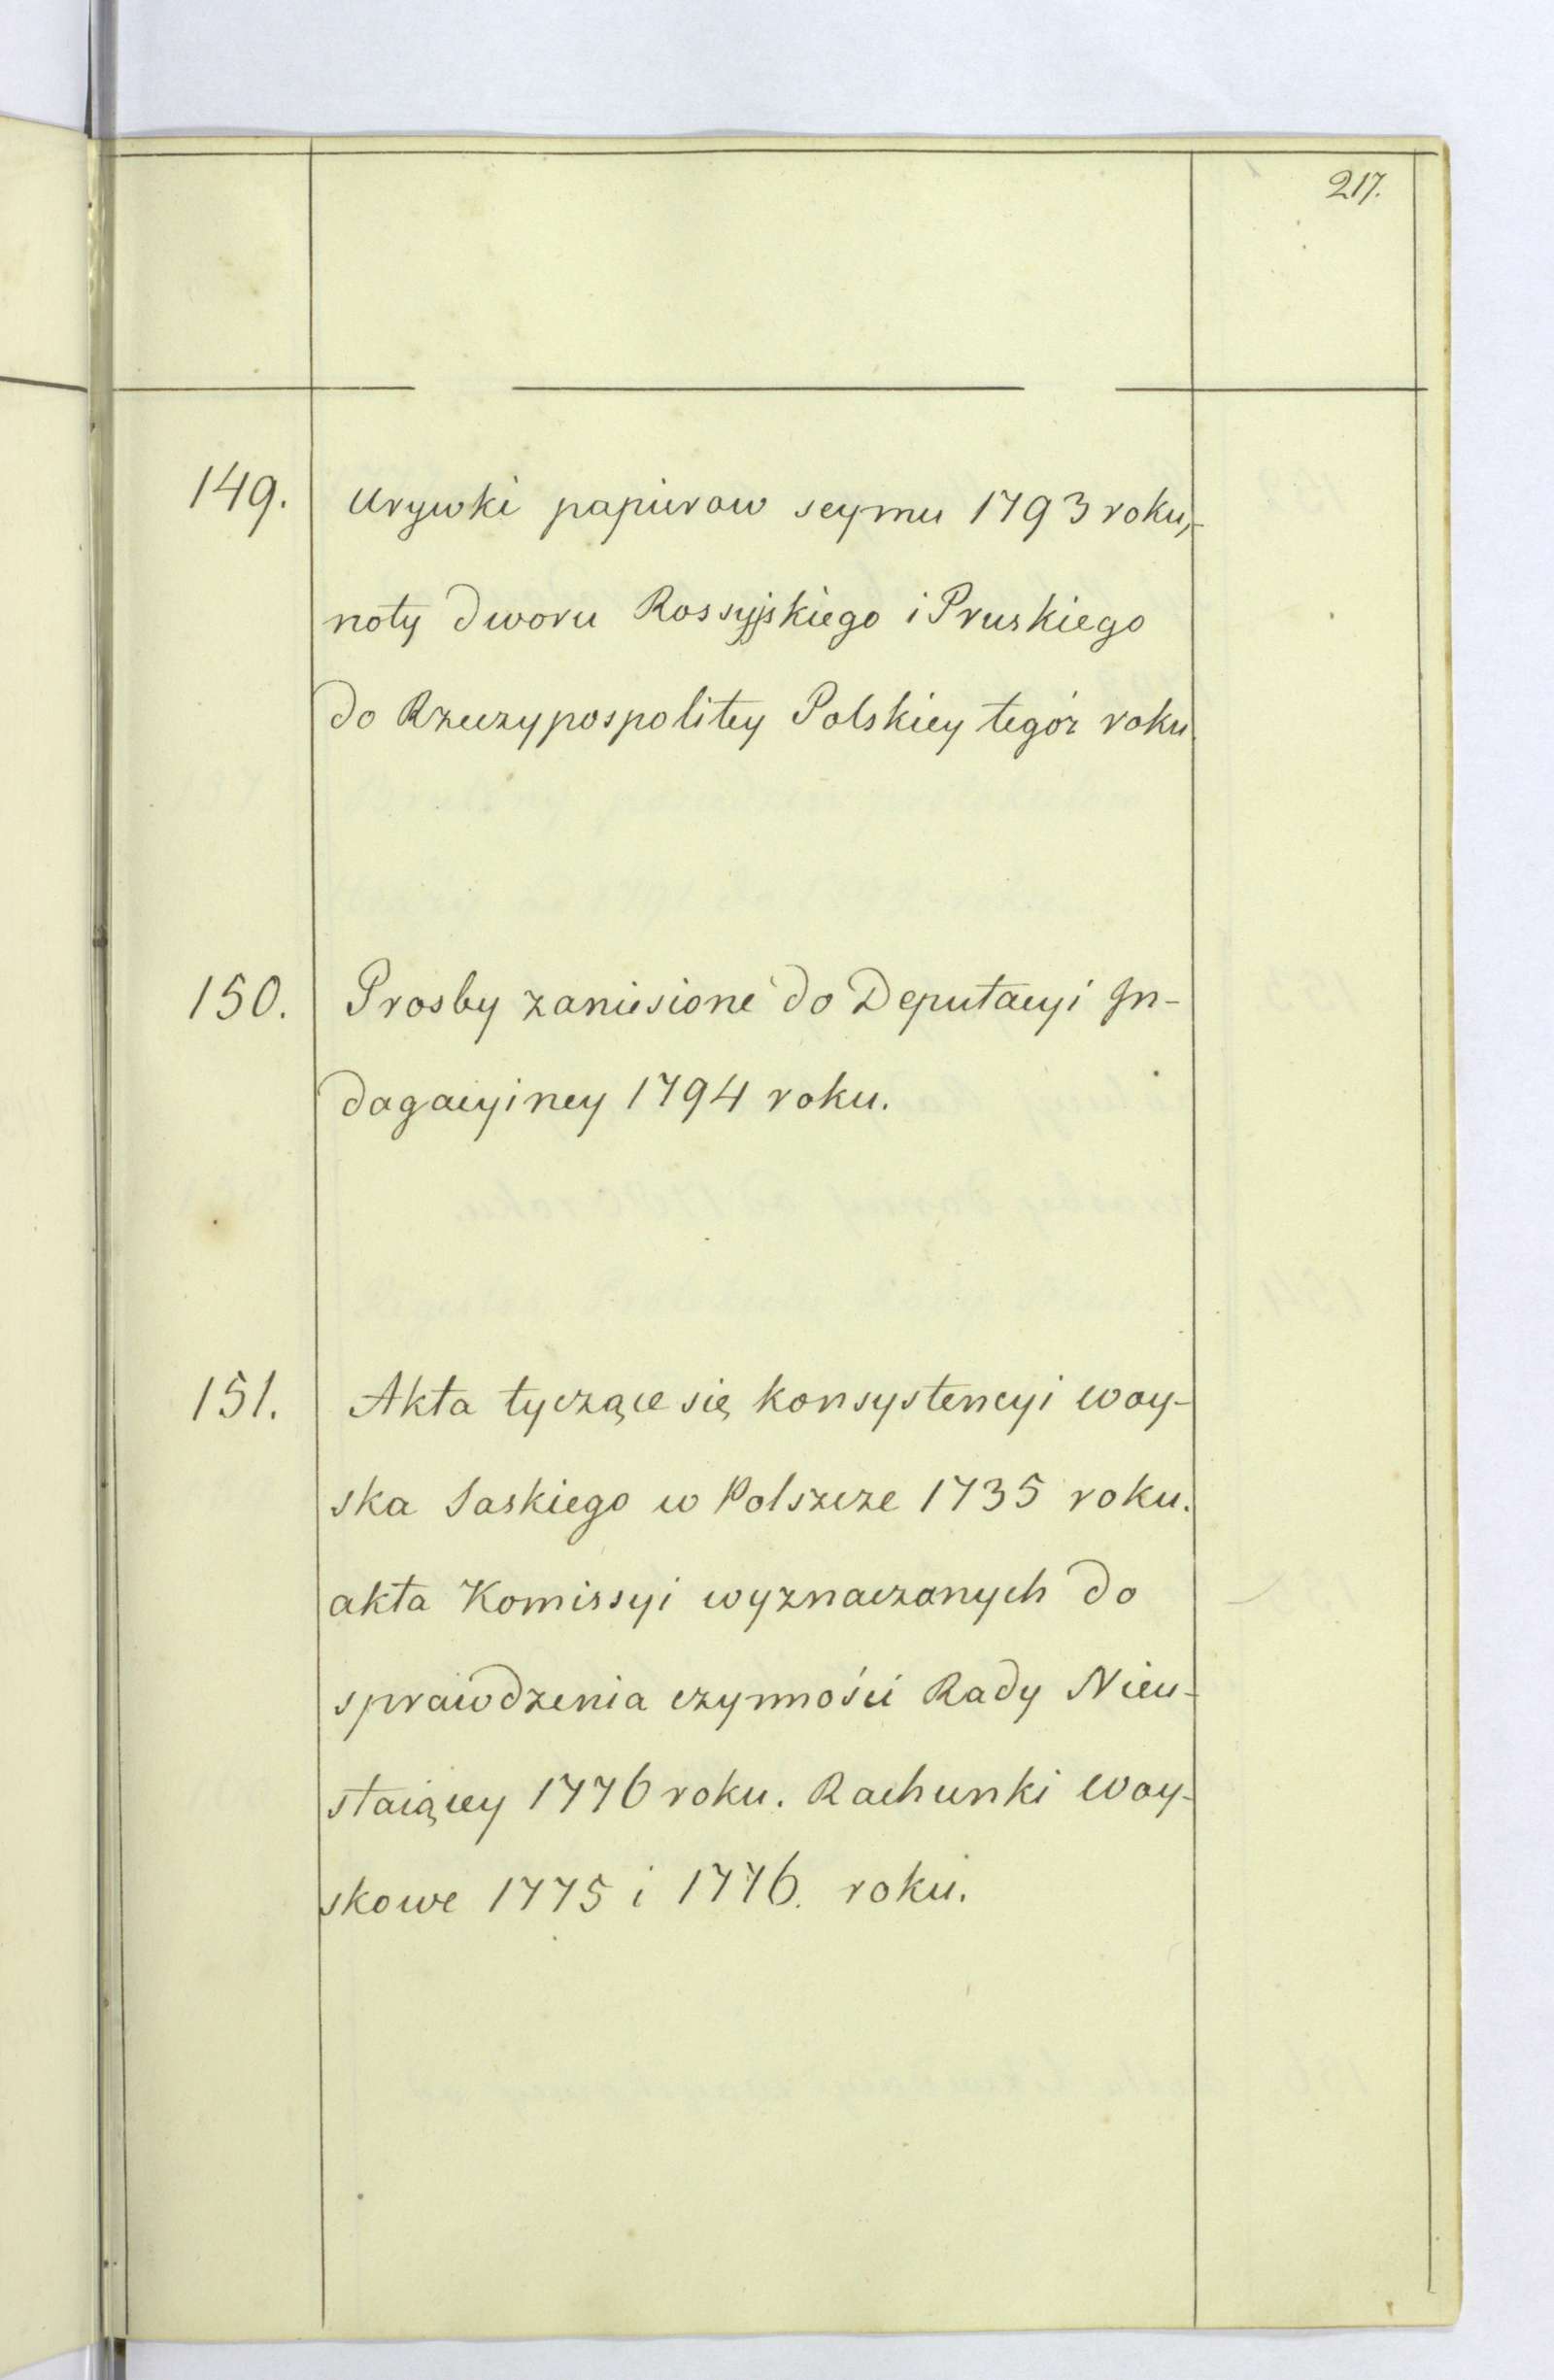 217.
149. Urywki papierow seymu 1793 roku,-
noty dworu Rossyjskiego i Pruskiego
do Rzeczypospolitey Polskiey tegóż roku
150. Prosby zaniesione do Deputacyi In-
dagacyiney 1794 roku.
151. Akta tyczące się konsystencyi woy-
ska Saskiego w Polszcze 1735 roku.
akta Komissyi wyznaczonych do
sprawdzenia czynności Rady Nieu-
staiącey 1776 roku. Rachunki woy-
skowe 1775 i 1776. roku.